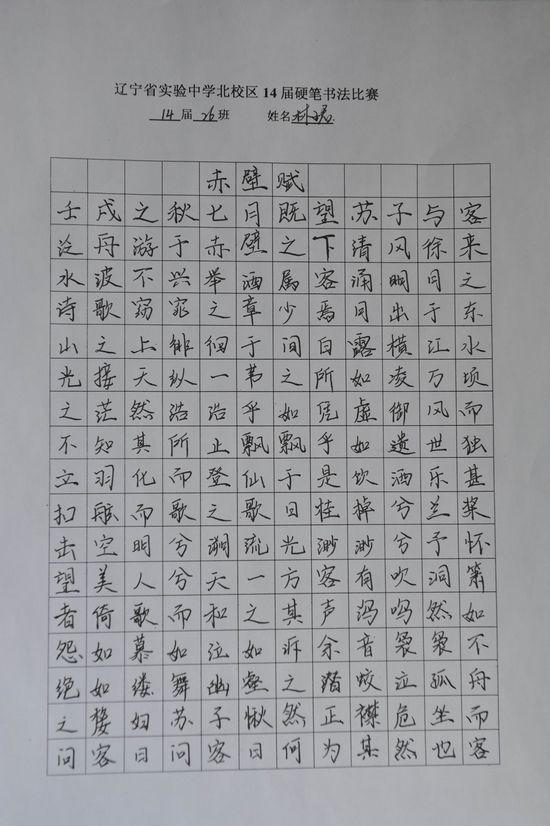 辽宁省实验中学北校区14届硬笔书法比赛
14届26班 姓名林珺
赤壁赋
壬戌之秋七月既望苏子与客
泛舟游于赤壁之下清风徐来
水波不兴举酒属客涌明月之
诗歌窈窕之章少焉月出于东
山之上徘徊于间白露横江水
光接天纵一苇之所如凌万顷
之茫然浩浩乎如凭虚御风而
不知其所止飘飘乎如遗世独
立羽化而登仙于是饮酒乐甚
扣舷而歌之歌曰桂棹兮兰桨
击空明兮溯流光渺渺兮予怀
望美人兮天一方客有吹洞箫
者倚歌而和之其声呜呜然如
怨如慕如泣如诉余音袅袅不
绝如缕舞幽壑之潜蛟泣孤舟
之嫠妇苏子愀然正襟危坐而
问客曰问客曰何为其然也客